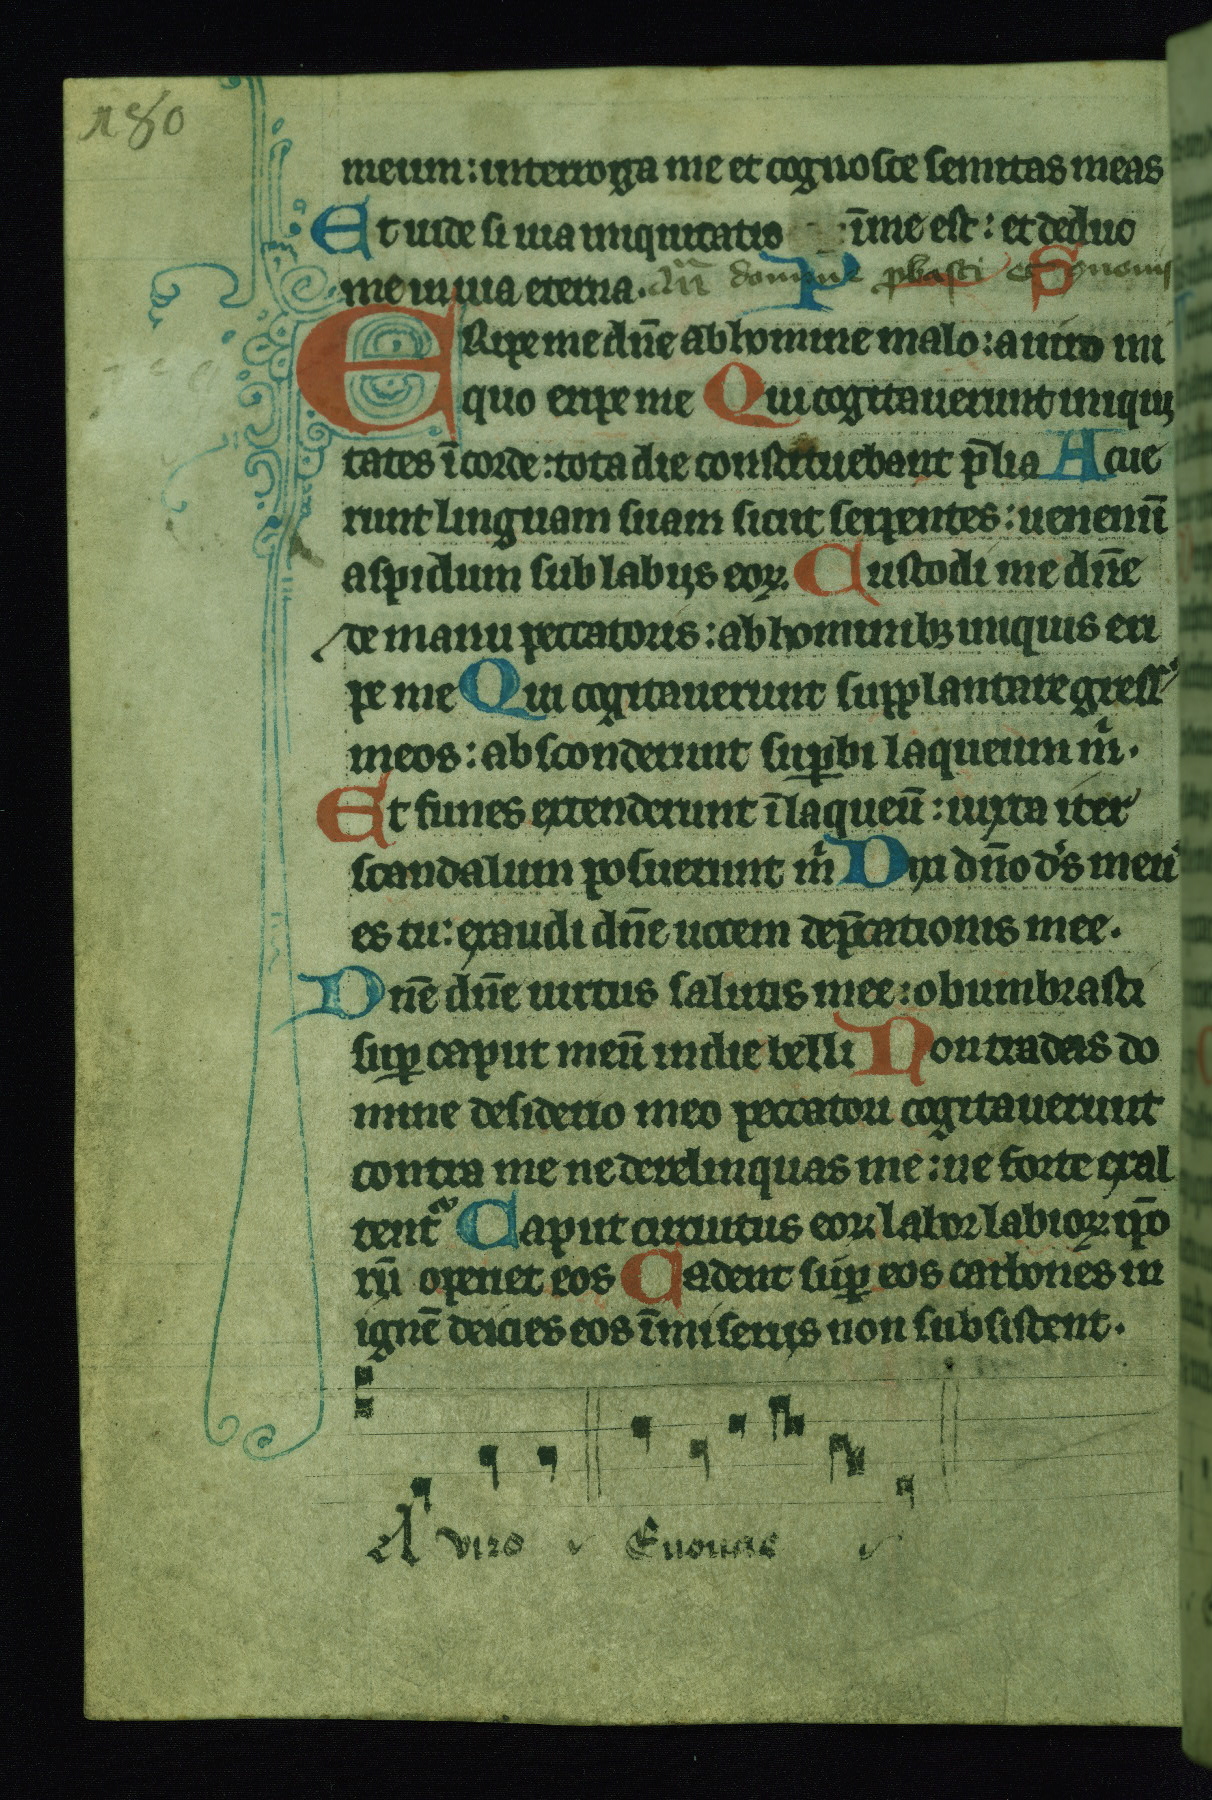 180
meum: interroga me et cognosce semitas meas
Et uide si uia iniquitatis ī me est: et deduc
me in uia eterna. Añ domine p̱basti P S
ERipe me dñe ab homine malo: a uiro ini
quo eripe me Qui cogitauerunt iniqui
tates ī corde: tota die constituebant p̄lia Acue
runt linguam suam sicut serpentes: uenenū
aspidum sub labijs eoꝝ. Custodi me dñe
de manu peccatoris: ab hominibꝫ iniquis eri
pe me Qui cogitauerunt supplantare gress᷒
meos: absconderunt suꝑbi laqueum m̍.
Et funes extenderunt ī laqueū: iuxta iter
scandalum posuerunt m̍ Dixi dño d̕s meus
es tu: exaudi dñe uocem dep̄cationis mee.
Dñe dñe uirtus salutis mee: obumbrasti
suꝑ caput meū in die belli Non tradas do
mine desiderio meo peccatori cogitauerunt
contra me ne derelinquas me: ne forte exal
tent᷑ Caput circuitus eoꝝ labor labioꝝ ip̄o
rū operiet eos Cadent suꝑ eos carbones in
ignē deicies eos ī miserijs non subsistent.
A viro Euouae